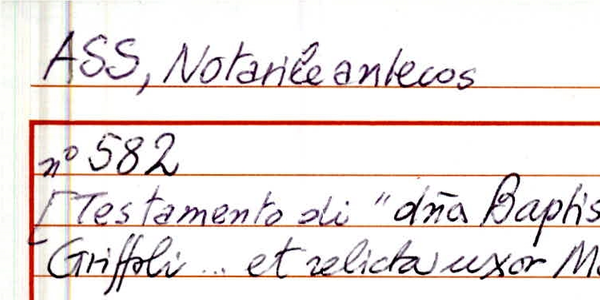 ASS, Notarile antecos
n° 582
[Testamento di "dña Baptis
Griffoli ... et relicta uxor M